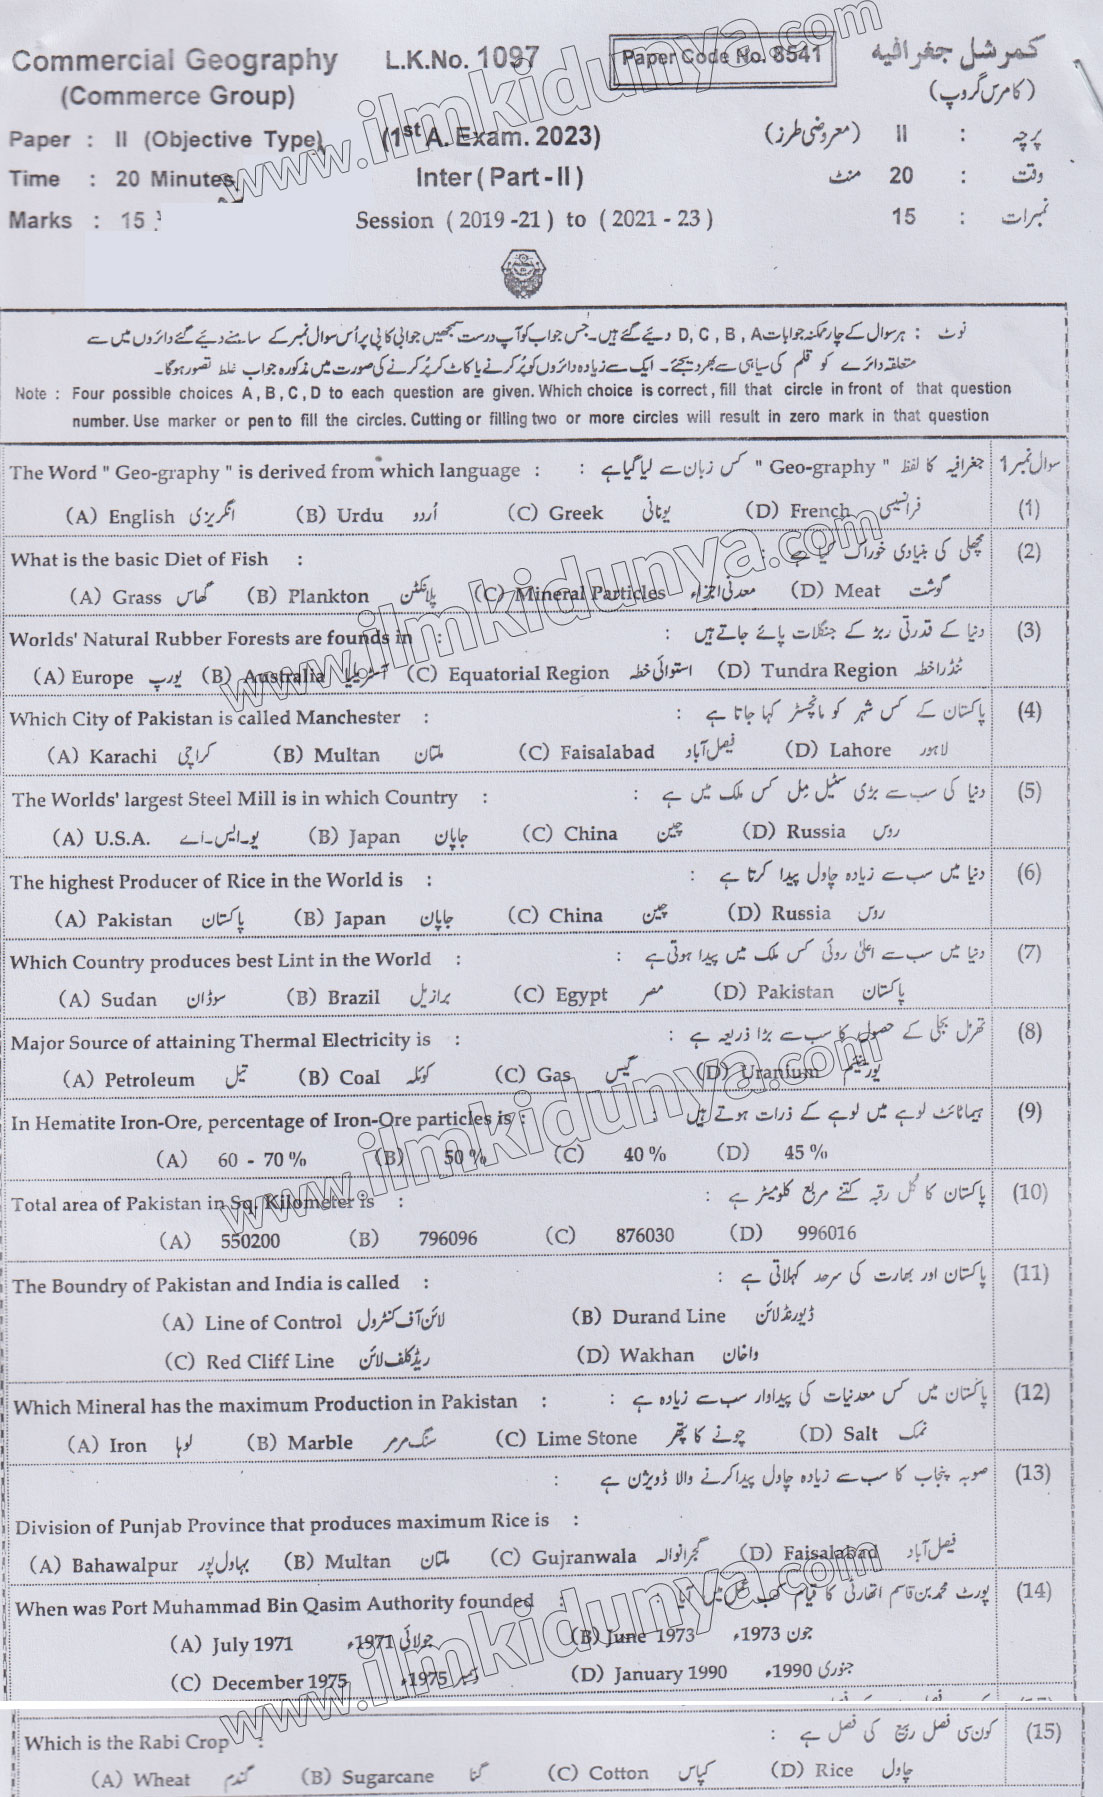 Commercial Geography L.K.No. 1097 Paper Code No. 8541 کمرشل جغرافیہ
(Commerce Group) (کامرس گروپ)
Paper : II (Objective Type) (1st A. Exam. 2023) پرچہ : II (معروضی طرز)
Time : 20 Minutes Inter (Part - II) وقت : 20 منٹ
Marks : 15 Session (2019 -21) to (2021 - 23) نمبرات : 15
نوٹ : ہر سوال کے چار ممکنہ جوابات D, C, B, A دیئے گئے ہیں۔ جس جواب کو آپ درست سمجھیں جوابی کاپی پر اُس سوال نمبر کے سامنے دیئے گئے دائروں میں سے
متعلقہ دائرے کو قلم کی سیاہی سے بھر دیجئے۔ ایک سے زیادہ دائروں کو پُر کرنے یا کاٹ کر پُر کرنے کی صورت میں مذکورہ جواب غلط تصور ہو گا۔
Note : Four possible choices A, B, C, D to each question are given. Which choice is correct, fill that circle in front of that question
number. Use marker or pen to fill the circles. Cutting or filling two or more circles will result in zero mark in that question
The Word " Geo-graphy " is derived from which language : جغرافیہ کا لفظ " Geo-graphy " کس زبان سے لیا گیا ہے : سوال نمبر 1
(A) English انگریزی (B) Urdu اُردو (C) Greek یونانی (D) French فرانسیسی (1)
What is the basic Diet of Fish : مچھلی کی بنیادی خوراک کیا ہے : (2)
(A) Grass گھاس (B) Plankton پلانکٹن (C) Mineral Particles معدنی اجزاء (D) Meat گوشت
Worlds' Natural Rubber Forests are founds in : دنیا کے قدرتی ربڑ کے جنگلات پائے جاتے ہیں : (3)
(A) Europe یورپ (B) Australia آسٹریلیا (C) Equatorial Region استوائی خطہ (D) Tundra Region ٹنڈرا خطہ
Which City of Pakistan is called Manchester : پاکستان کے کس شہر کو مانچسٹر کہا جاتا ہے : (4)
(A) Karachi کراچی (B) Multan ملتان (C) Faisalabad فیصل آباد (D) Lahore لاہور
The Worlds' largest Steel Mill is in which Country : دنیا کی سب سے بڑی سٹیل مِل کس ملک میں ہے : (5)
(A) U.S.A. یو۔ایس۔اے (B) Japan جاپان (C) China چین (D) Russia روس
The highest Producer of Rice in the World is : دنیا میں سب سے زیادہ چاول پیدا کرتا ہے : (6)
(A) Pakistan پاکستان (B) Japan جاپان (C) China چین (D) Russia روس
Which Country produces best Lint in the World : دنیا میں سب سے اعلیٰ روئی کس ملک میں پیدا ہوتی ہے : (7)
(A) Sudan سوڈان (B) Brazil برازیل (C) Egypt مصر (D) Pakistan پاکستان
Major Source of attaining Thermal Electricity is : تھرمل بجلی کے حصول کا سب سے بڑا ذریعہ ہے : (8)
(A) Petroleum تیل (B) Coal کوئلہ (C) Gas گیس (D) Uranium یورینیئم
In Hematite Iron-Ore, percentage of Iron-Ore particles is : ہیماٹائٹ لوہے میں لوہے کے ذرات ہوتے ہیں : (9)
(A) 60 - 70 % (B) 50 % (C) 40 % (D) 45 %
Total area of Pakistan in Sq. Kilometer is : پاکستان کا کُل رقبہ کتنے مربع کلومیٹر ہے : (10)
(A) 550200 (B) 796096 (C) 876030 (D) 996016
The Boundry of Pakistan and India is called : پاکستان اور بھارت کی سرحد کہلاتی ہے : (11)
(A) Line of Control لائن آف کنٹرول (B) Durand Line ڈیورنڈ لائن
(C) Red Cliff Line ریڈ کلف لائن (D) Wakhan واخان
Which Mineral has the maximum Production in Pakistan : پاکستان میں کس معدنیات کی پیداوار سب سے زیادہ ہے : (12)
(A) Iron لوہا (B) Marble سنگ مرمر (C) Lime Stone چونے کا پتھر (D) Salt نمک
صوبہ پنجاب کا سب سے زیادہ چاول پیدا کرنے والا ڈویژن ہے : (13)
Division of Punjab Province that produces maximum Rice is :
(A) Bahawalpur بہاولپور (B) Multan ملتان (C) Gujranwala گجرانوالہ (D) Faisalabad فیصل آباد
When was Port Muhammad Bin Qasim Authority founded : پورٹ محمد بن قاسم اتھارٹی کا قیام کب عمل میں آیا : (14)
(A) July 1971 جولائی 1971ء (B) June 1973 جون 1973ء
(C) December 1975 دسمبر 1975ء (D) January 1990 جنوری 1990ء
Which is the Rabi Crop : کون سی فصل ربیع کی فصل ہے : (15)
(A) Wheat گندم (B) Sugarcane گنا (C) Cotton کپاس (D) Rice چاول
www.ilmkidunya.com
www.ilmkidunya.com
www.ilmkidunya.com
www.ilmkidunya.com